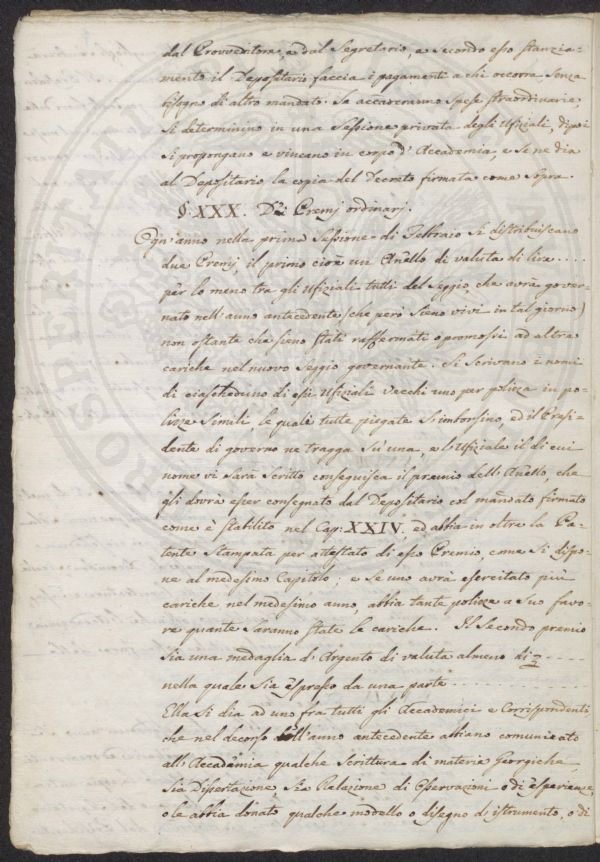 dal Provveditore, e dal Segretario, e secondo esso stanzia-
mento il Depositario faccia i pagamenti a chi occorra senza
bisogno di altro mandato. Se accaderanno spese straordinarie
si determinino in una Sessione privata degli Ufiziali, dipoi
si propongano e vincano in corpo d'Accademia, e se ne dia
al Depositario la copia del Decreto firmata come sopra.
§ XXX. Dei Premj ordinarj.
Ogn'anno nella prima Sessione di Febbraio si distribuiscano
due Premj, il primo cioè un Anello di valuta di lire ....
per lo meno tra gli Ufiziali tutti del Seggio, che avrà gover-
nato nell'anno antecedente (che però sieno vivi in tal giorno)
non ostante che sieno stati raffermati o promossi ad altra
cariche nel nuovo Seggio governante. Si scrivano i nomi
di ciascheduno di essi Ufiziali vecchi uno per polizza in po-
lizze simili le quali tutte piegate s'imborsino, ed il Presi-
dente di governo ne tragga su una, e l'Ufiziale il di cui
nome vi sarà scritto conseguisca il premio dell'Anello che
gli dovrà esser consegnato dal Depositario col mandato firmato
come è stabilito nel Cap: XXIV, ed abbia in oltre la Pa-
tente stampata per attestato di esso Premio, come si dispo-
ne al medesimo Capitolo; e se uno avrà esercitato più
cariche nel medesimo anno, abbia tante polizze a suo favo-
re quante saranno state le cariche. Il Secondo premio
sia una medaglia d'Argento di valuta almeno di
nella quale sia espresso da una parte
Ella si dia ad uno fra tutti gli Accademici e Corrispondenti
che nel decorso dell'anno antecedente abbiano comunicato
all'Accademia qualche Scrittura di materie Georgiche
sia Dissertazione, sia Relazione di Osservazioni o di esperienze,
o le abbia donato qualche modello o disegno d'istrumento, o di